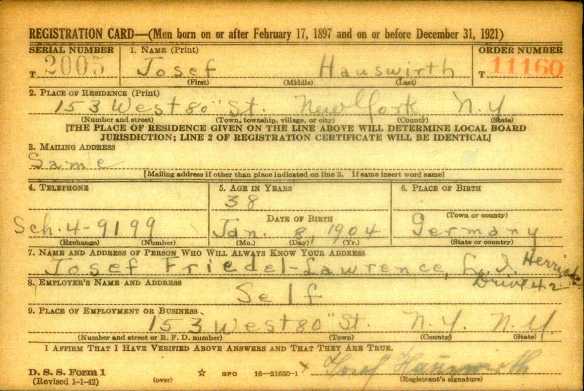 REGISTRATION CARD—(Men born on or after February 17, 1897 and on or before December 31, 1921)
SERIAL NUMBER 1. NAME (Print) ORDER NUMBER
T 2005 Josef Hauswirth T 11160
(First) (Middle) (Last)
2. PLACE OF RESIDENCE (Print)
153 West 80" St. New York N.Y
(Number and street) (Town, township, village, or city) (County) (State)
[THE PLACE OF RESIDENCE GIVEN ON THE LINE ABOVE WILL DETERMINE LOCAL BOARD
JURISDICTION; LINE 2 OF REGISTRATION CERTIFICATE WILL BE IDENTICAL]
3. MAILING ADDRESS
Same
[Mailing address if other than place indicated on line 2. If same insert word same]
4. TELEPHONE 5. AGE IN YEARS 6. PLACE OF BIRTH
38
DATE OF BIRTH (Town or county)
Sch. 4-9199 Jan. 8 1904 Germany
(Exchange) (Number) (Mo.) (Day) (Yr.) (State or country)
7. NAME AND ADDRESS OF PERSON WHO WILL ALWAYS KNOW YOUR ADDRESS
Josef Friedel-Lawrence, L.I. Herrick
Drive 42
8. EMPLOYER'S NAME AND ADDRESS
Self
9. PLACE OF EMPLOYMENT OR BUSINESS
153 West 80" St. N.Y. N.Y
(Number and street or R. F. D. number) (Town) (County) (State)
I AFFIRM THAT I HAVE VERIFIED ABOVE ANSWERS AND THAT THEY ARE TRUE.
D. S. S. Form 1 Josef Hauswirth
(Revised 1-1-42) (over) GPO 16—21630-1 (Registrant's signature)